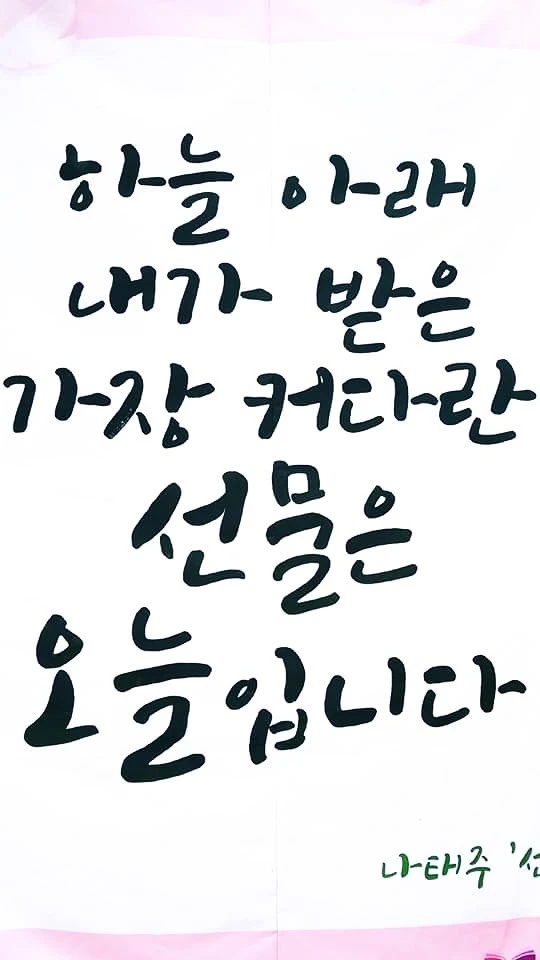 하늘 아래
내가 받은
가장 커다란
선물은
오늘입니다
나태주 '선